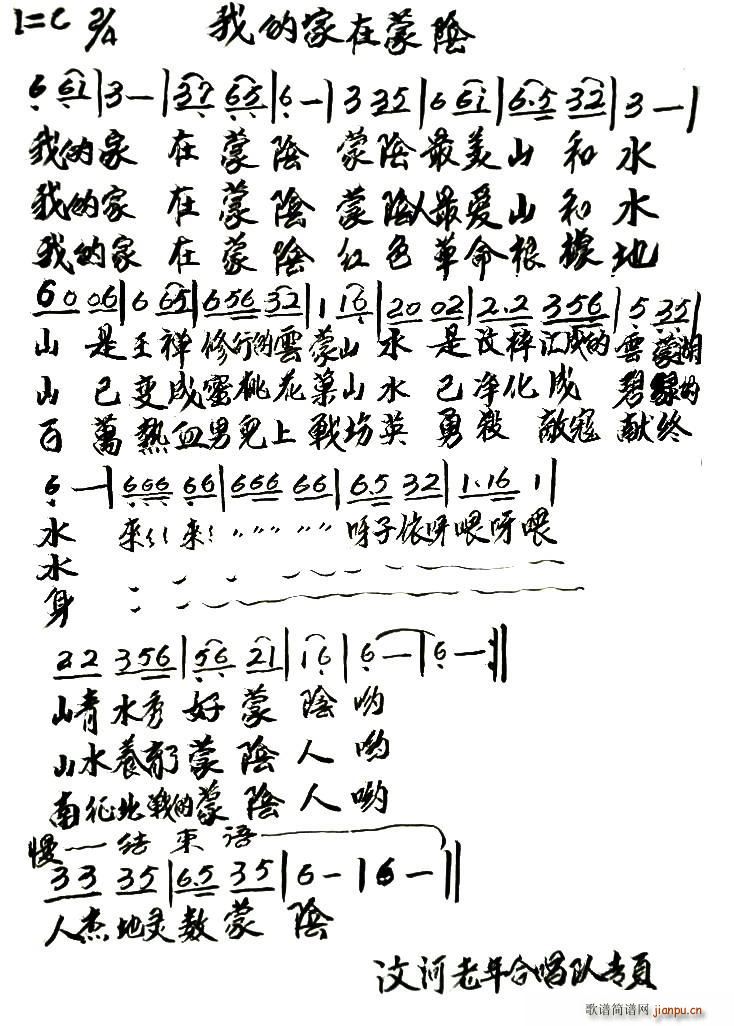 1=C 2/4 我的家在蒙陰
6 61|3—|37 65|6—|3 35|6 61|6.5 32|3—|
我的家 在蒙陰 蒙陰最美山和水
我的家 在蒙陰 蒙陰人最爱山和水
我的家 在蒙陰 红色革命根據地
60 06|6 65|656 32|1 16|20 02|2.2 356|5 35|
山 是王禅修行的雲蒙山 水 是汶梓汇成的雲蒙湖
山 已变成蜜桃花菓山 水 已净化成 碧緑的
百 萬熱血男兒上戰场英 勇殺 敵寇 献终
6—|666 66|666 66|6.5 32|1.16 1|
水 來!! 來! 〃〃〃 〃〃 呀子依呀喂呀喂
水
身
22 356|56 21|16|6—|6—:||
山青水秀好蒙陰哟
山水養育了蒙陰人哟
南征北戰的蒙陰人哟
慢——结束语——
33 35|6.5 35|6—|6—||
人杰地灵数蒙陰
汶河老年合唱队专頁
歌谱简谱网
jianpu.cn